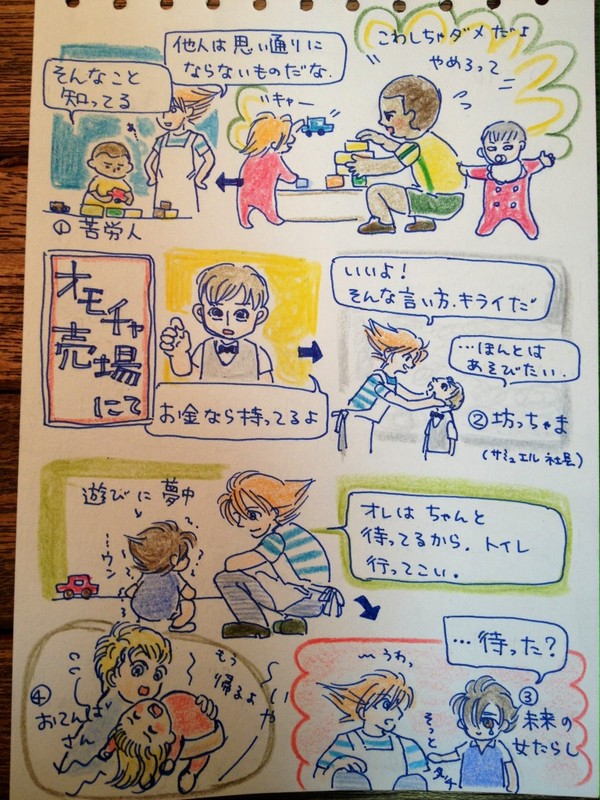 こわしちゃダメだよ
やめろって
キャー
他人は思い通りに
ならないものだな.
そんなこと
知ってる
①苦労人
オモチャ
売場
にて
お金なら持ってるよ
いいよ!
そんな言い方、キライだ
…ほんとは
あそびたい.
②坊っちゃま
(サミュエル社長)
遊びに夢中
…ウン
オレは ちゃんと
待ってるから、トイレ
行ってこい。
…待った?
うわっ
そっと
タッチ
③
未来の
女たらし
④
おてんば
さん
もう
帰るよ
いや